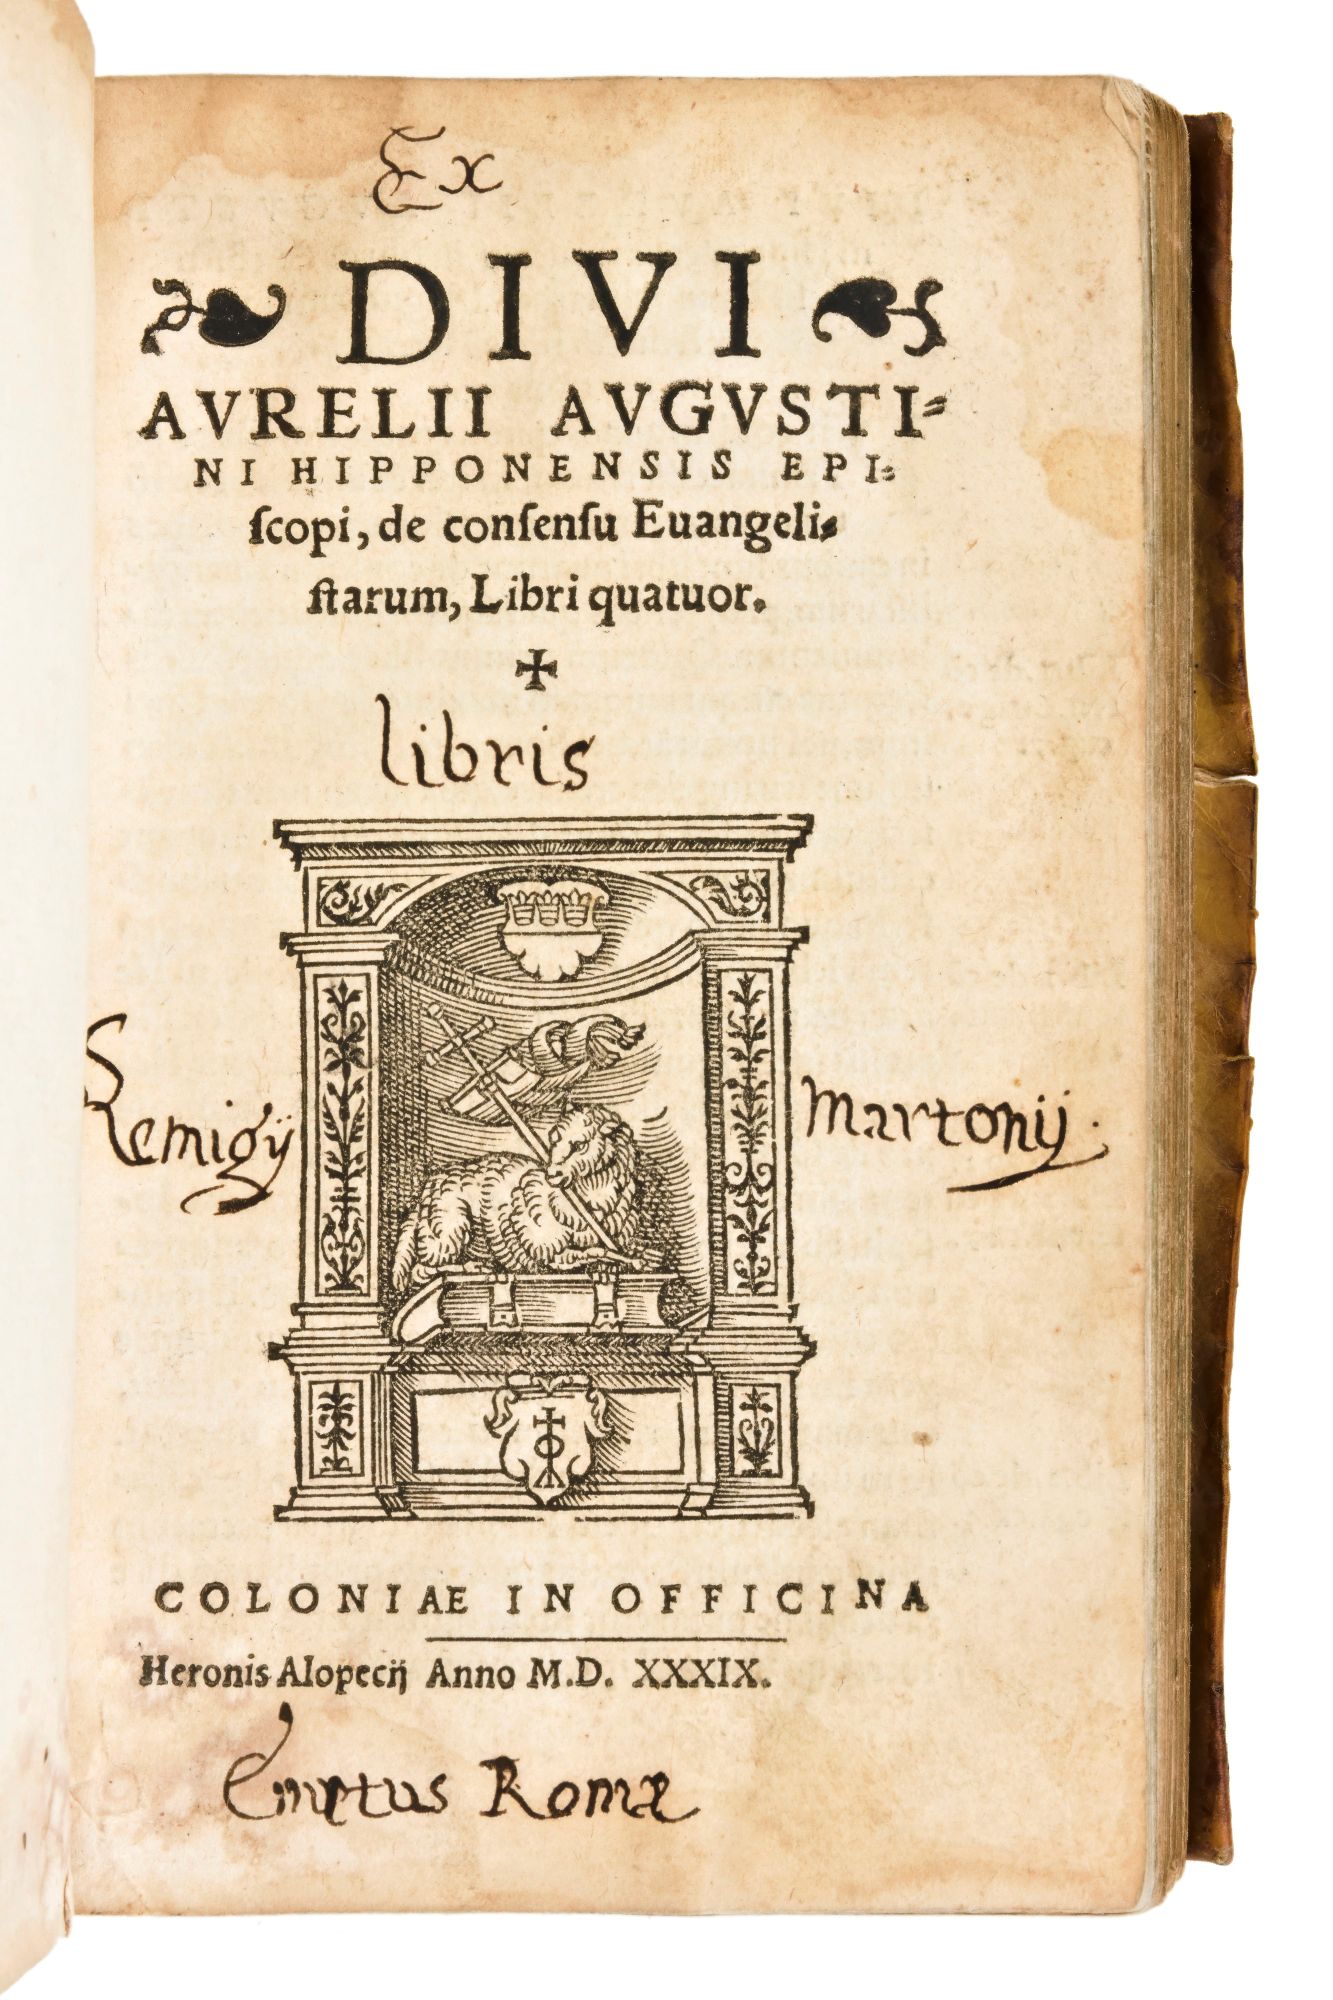 Ex
DIVI
AVRELII AVGVSTI=
NI HIPPONENSIS EPI=
ſcopi, de conſenſu Euangeli=
ſtarum, Libri quatuor.
✠
libris
Remigij Martonij.
COLONIAE IN OFFICINA
Heronis Alopecij Anno M.D. XXXIX.
Emptus Romæ